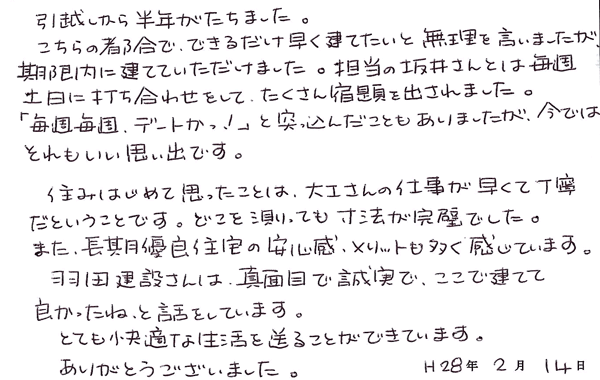 引越しから半年がたちました。
こちらの都合で、できるだけ早く建てたいと無理を言いましたが、
期限内に建てていただけました。担当の坂井さんとは毎週
土日に打ち合わせをして、たくさん宿題を出されました。
「毎週毎週、デートかっ！」と突っ込んだこともありましたが、今では
それもいい思い出です。
住みはじめて思ったことは、大工さんの仕事が早くて丁寧
だということです。どこを測っても寸法が完璧でした。
また、長期優良住宅の安心感、メリットも多く感じています。
羽田建設さんは、真面目で誠実で、ここで建てて
良かったね、と話をしています。
とても快適な生活を送ることができています。
ありがとうございました。 H28年 2月 14日